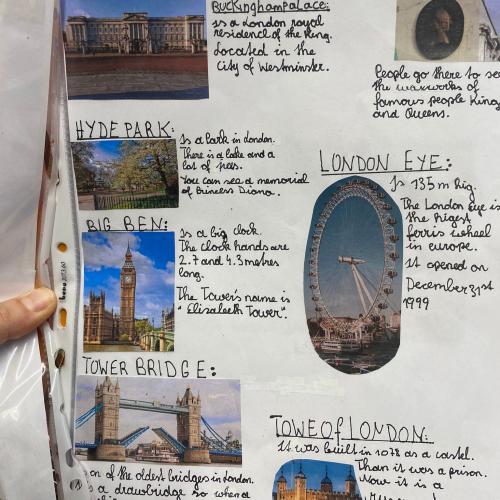 BUCKINGHAM PALACE:
is a London royal
residencl of the King.
Located in the
City of Westminster.
People go there to see
the waxworks of
famous people Kings
and Queens.
HYDE PARK:
Is a park in London.
There is a lake and a
lot of
You can see a memorial
of Princess Diana.
LONDON EYE:
Is 135m hig.
The London Eye is
the higest
ferris wheel
in europe.
It opened on
December 31st
1999
BIG BEN:
Is a big clock.
The clock hands are
2.7 and 4.3 metres
long.
The Tower's name is
"Elisabeth Tower".
TOWER BRIDGE:
on of the oldest bridges in London.
a drawbridge so when a
TOWE of LONDON:
It was built in 1078 as a castel.
Than it was a prison.
Now it is a